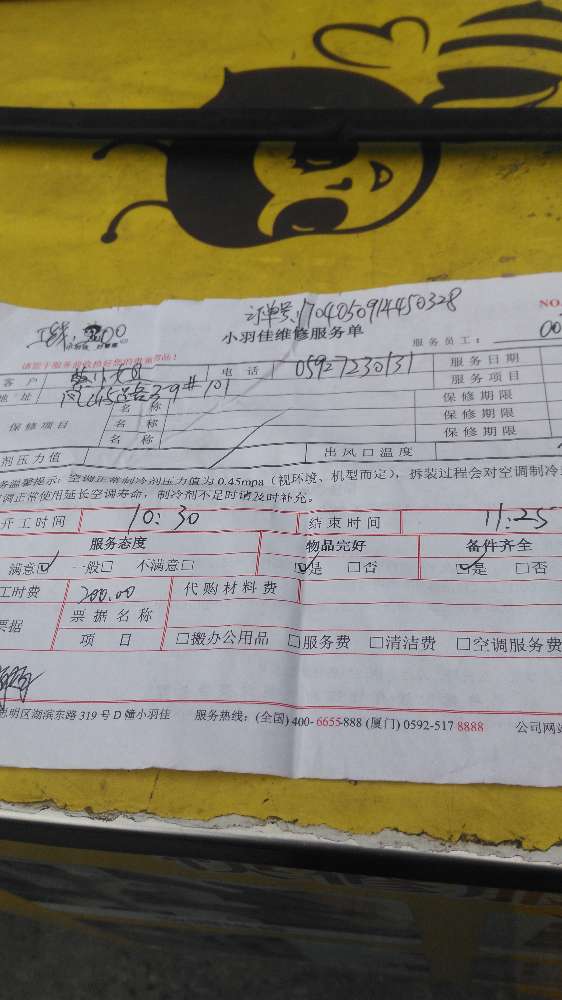 订单号:170405091445 0328
NO.
小羽佳维修服务单
服务员工: 00
客 户 电 话 05927230131 服务日期
地 址 服务项目
保修项目 名 称 保修期限
名 称 保修期限
名 称 保修期限
剂压力值 出风口温度
温馨提示: 空调正常制冷剂压力值为0.45mpa (视环境、机型而定), 拆装过程会对空调制冷
调正常使用延长空调寿命, 制冷剂不足时请及时补充。
开工时间 10:30 结束时间 11:25
服务态度 物品完好 备件齐全
满意☑ 一般□ 不满意□ ☑是 □否 ☑是 □否
工时费 200.00 代购材料费
票据 票据名称
项 目 □搬办公用品 □服务费 □清洁费 □空调服务费
思明区湖滨东路 319 号 D 幢小羽佳 服务热线: (全国) 400-6655-888 (厦门) 0592-517 8888 公司网站